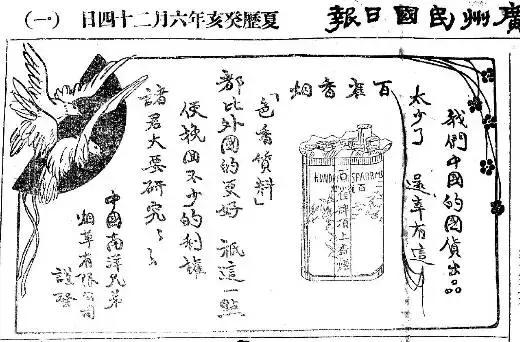 廣州民國日報
夏歷癸亥年六月二十四日 (一)
我們中國的國貨出品
太少了 還幸有這
百雀香烟
HUND
SPARROWS
百雀牌頂上香烟
「色香貨料」
都比外國的更好 祇這一點
使挽回不少的利權
諸君大要研究々々
中國南洋兄弟
烟草有限公司
謹啓